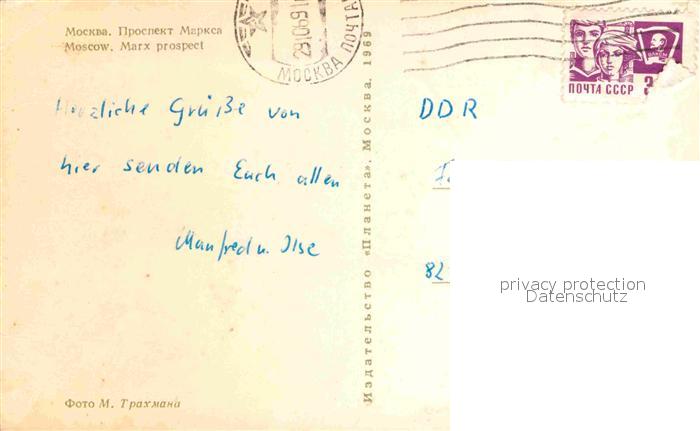 Москва. Проспект Маркса
Moscow. Marx prospect
МОСКВА ПОЧТА
ПОЧТА СССР
Herzliche Grüße von
hier senden Euch allen
Manfred u. Ilse
DDR
82
privacy protection
Datenschutz
Издательство «Планета». Москва. 1969
Фото М. Трахмана